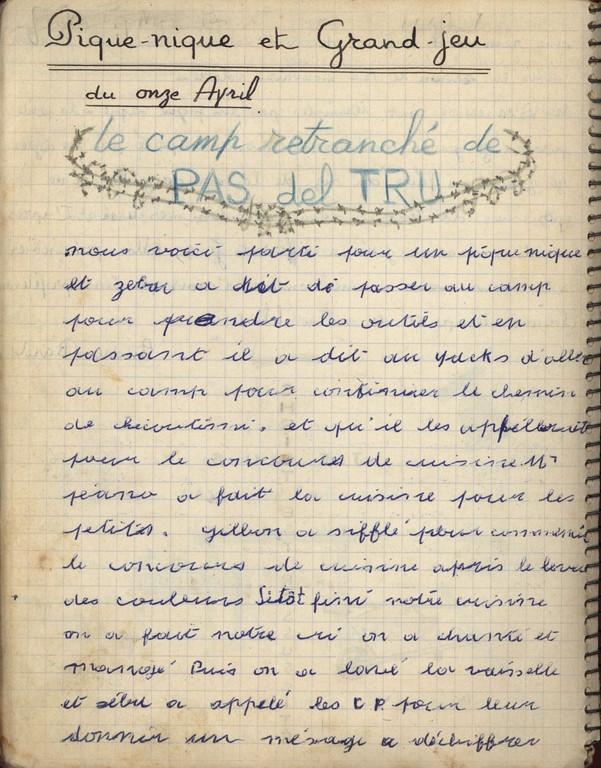 Pique-nique et Grand-jeu
du onze Avril
le camp retranché de
PAS del TRU
nous voici parti pour un pique nique
et a dit de passer au camp
pour prandre les outils et en
passant il a dit au yacks d'aller
au camp pour continuer le chemin
de et qu'il les
pour le concours de cuisine Mr
a fait la cuisine pour les
petits. a sifflé pour
le concours de cuisine apris le
des couleurs Sitôt fini notre cuisine
on a fait notre cri on a chanté et
mangé Puis on a lavé la vaisselle
et a appelé les C P pour leur
donnir un mésage a déchiffrer